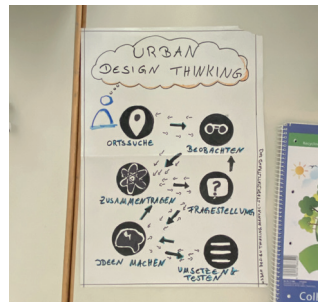 URBAN
DESIGN THINKING
Do
ORTSSUCHE
BEOBACHTEN
ZUSAMMENTRAGEN
FRAGESTELLUNG
?
IDEEN MACHEN
UMSETZEN &
TESTEN
Coll